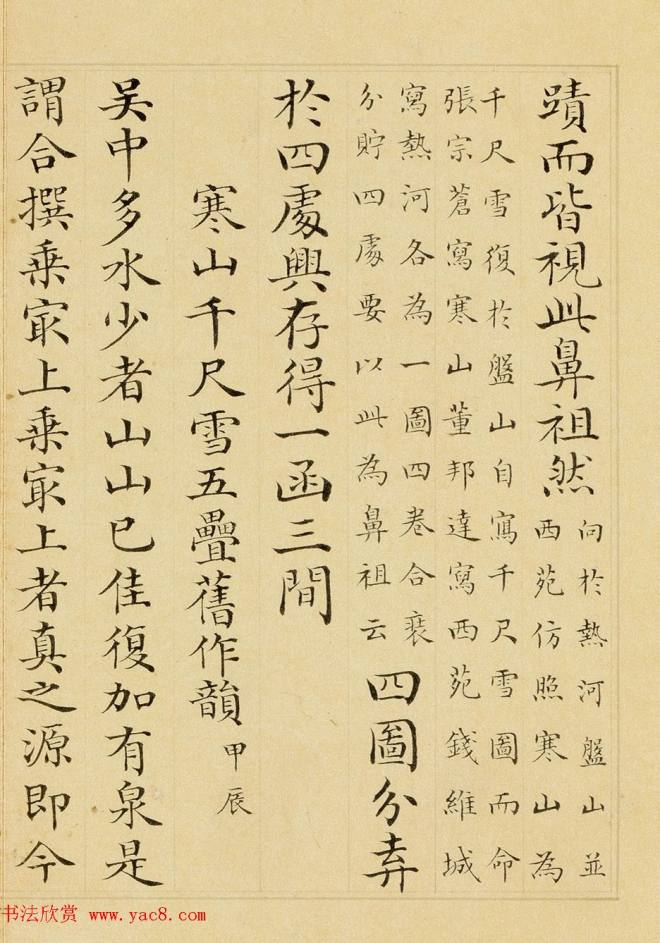 蹟而皆視此鼻祖然
向於熱河盤山並
西苑仿照寒山為
千尺雪復於盤山自寫千尺雪圖而命
張宗蒼寫寒山董邦達寫西苑錢維城
寫熱河各為一圖四卷合裒
分貯四處要以此為鼻祖云
四圖分弆
於四處興存得一函三間
寒山千尺雪五疊舊作韻
甲辰
吴中多水少者山山已佳復加有泉是
謂合撰乗冣上乗冣上者真之源即今
书法欣赏 www.yac8.com